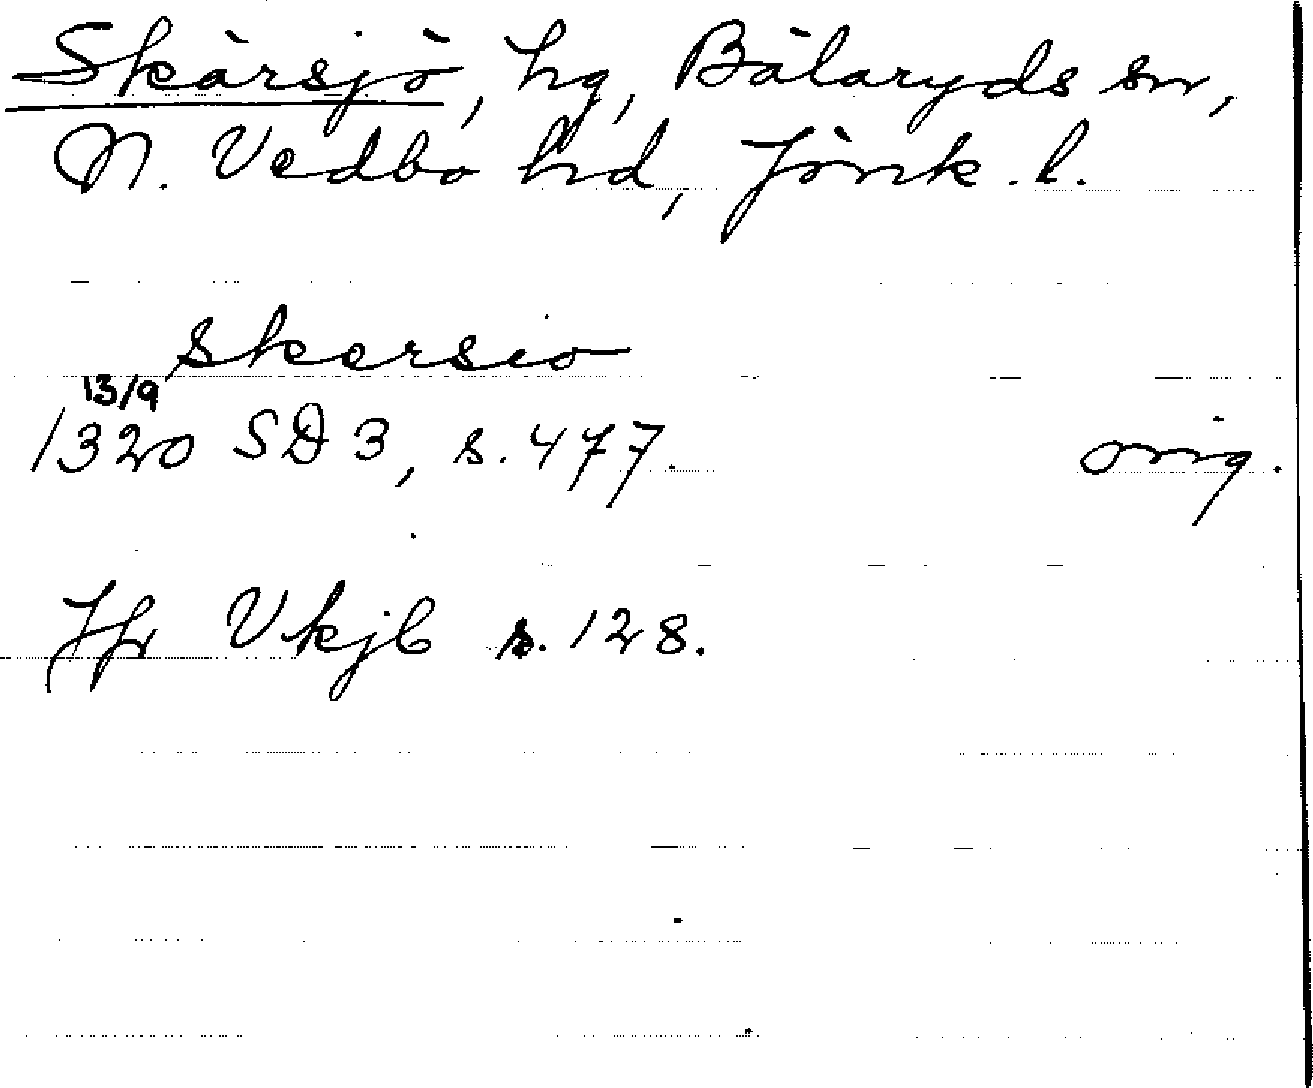 Skärsjö, hg, Bälaryds sn,
N. Vedbo hd, Jönk. l.
skersio
13/9
1320 SD 3, s. 477. orig.
Jfr Vkjb s. 128.